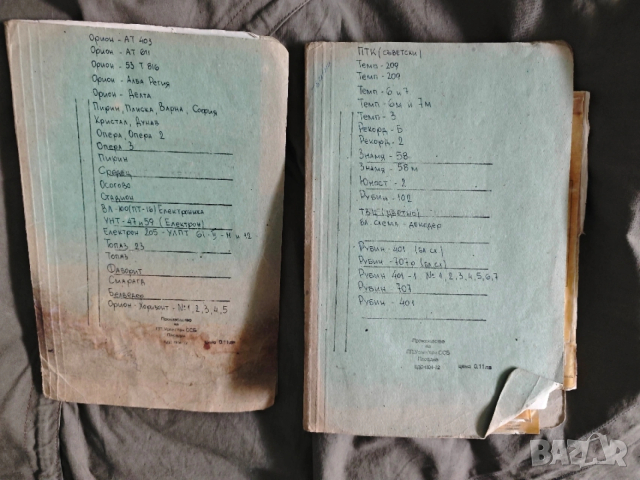 Орион - АТ 403
Орион - АТ 611
Орион - 53 Т 816
Орион - Алба Регия
Орион - Делта
Пирин, Плиска, Варна, София
Кристал, Дунав
Опера, Опера 2
Опера 3
Пирин
Средец
Осогово
Стадион
ВЛ-100(ПТ-16) Електроника
УНТ-47 и 59 (Електрон)
Електрон 205 - УЛПТ 61-II-11 и 12
Топаз 23
Топаз
Фаворит
Смарагд
Белведер
Орион - Хоризонт - № 1, 2, 3, 4, 5
Производство
на
Пловдив
цена 0.11
ПТК (съветски)
Темп - 209
Темп - 209
Темп - 6 и 7
Темп - 6м и 7м
Темп - 3
Рекорд - Б
Рекорд - 2
Знамя - 58
Знамя - 58 м
Юност - 2
Рубин - 102
ТВЦ (цветни)
бл. схема - декодер
Рубин - 401 (бл.сх)
Рубин - 707р (бл.сх)
Рубин 401-1 № 1, 2, 3, 4, 5, 6, 7
Рубин 707
Рубин - 401
Производство
на
Пловдив
цена 0.11
BAZAR